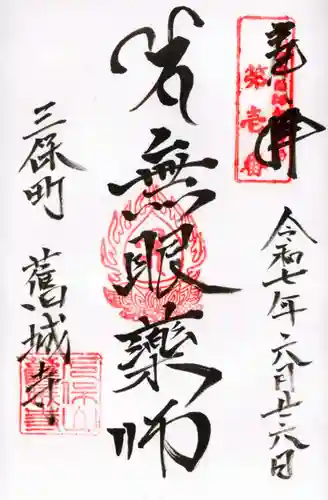 奉拝
第壱番
令和七年六月廿六日
無眼藥師
三保町
舊城寺